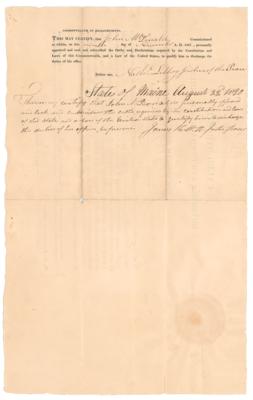 COMMONWEALTH OF MASSACHUSETTS.
THIS MAY CERTIFY, that John McDonald Commissioned
as within, on this day of A. D. 181 , personally
appeared and took and subscribed the Oaths and Declarations required by the Constitution and
Laws of this Commonwealth, and a Law of the United States, to qualify him to discharge the
duties of his office.
Before me, Justice of the Peace
State of Maine August 22 1820
This may certify that John McDonald personally appeared
and took and subscribed the oaths required by the constitution and laws
of said State and a law of the United States to qualify him to discharge
the duties of his office, before me
James